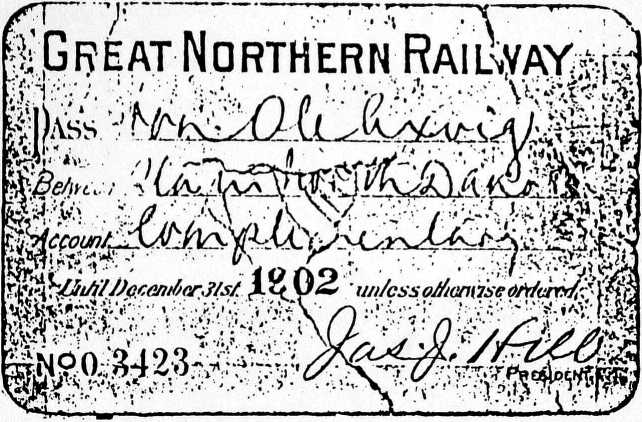 GREAT NORTHERN RAILWAY
PASS Hon. Ole
Between in North Dakota
Account Complimentary
Until December 31st 1902 unless otherwise ordered
No 0.3423 Jas. J. Hill
PRESIDENT